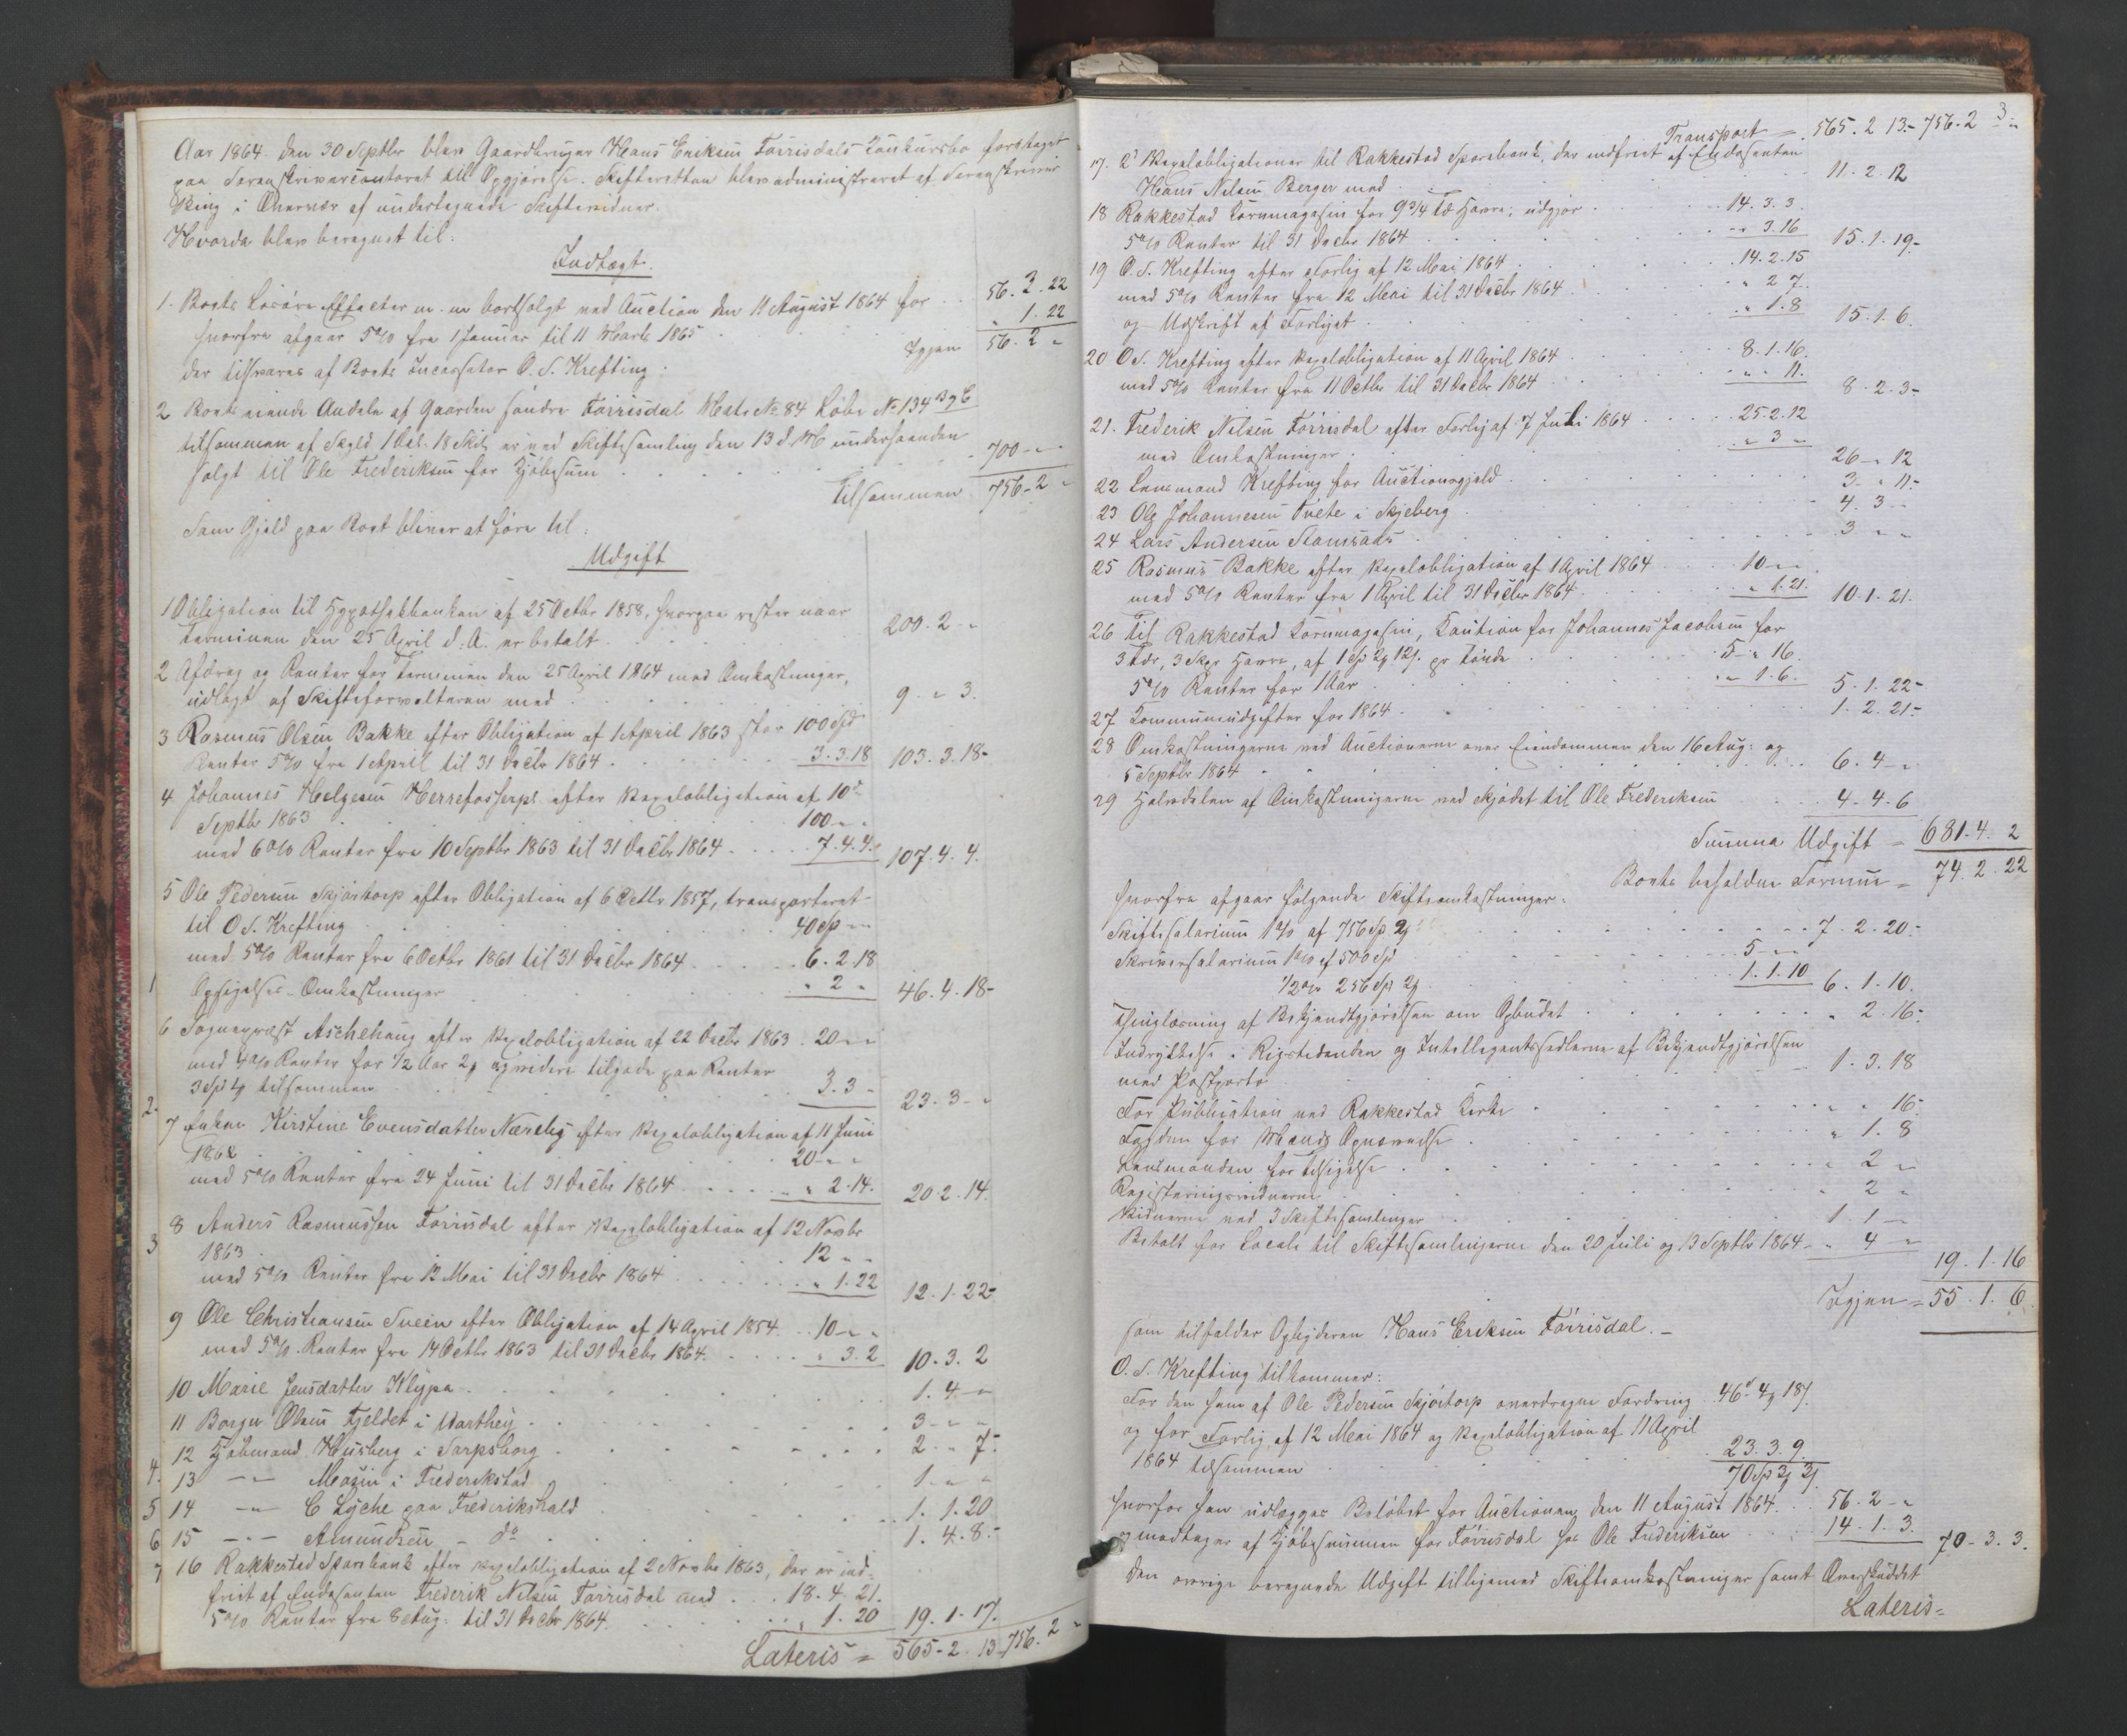 Aar 1864 den 30 Septbr blev Gaardbruger Hans Eriksen Førrisdals Konkursbo foretaget
paa Sorenskrivercontoret til Opgjørelse. Skifteretten blev administreret af Sorenskriver
Bing i Overvær af undertegnede Skiftevidner.
Hvorda blev beregnet til:
Indtægt.
1. Boets Løsøre Effecter m.m. bortsolgt ved Auction den 11 August 1864 for 56. 3. 22
hvorfra afgaar 5% fra 1 Januar til 11 Marts 1865 " 1. 22
der tilsvares af Boets Incassator O. S. Krefting. Igjen 56. 2 "
2 Boets eiende Andele af Gaarden søndre Førrisdal Matr No 84 Løbe No 134 B og C
tilsammen af Skyld 1 Dal. 18 Skil, er ved Skiftesamling den 13 d. M. underhaanden
solgt til Ole Frederiksen for Kjøbesum 700 - "
Tilsammen 756 - 2 "
Som Gjeld paa Boet bliver at føre til:
Udgift
1 Obligation til Hypothekbanken af 25 Octbr 1858, hvorpaa rester naar
Terminen den 25 April d. A. er betalt 200. 2 - "
2 Afdrag og Renter for Terminen den 25 April 1864 med Omkostninger,
udlagt af Skifteforvalteren med 9. " 3.
3 Rasmus Olsen Bakke efter Obligation af 1 April 1863 stor 100 Spd
Renter 5% fra 1 April til 31 Decbr 1864 3. 3. 18 103. 3. 18 -
4 Johannes Helgesen Herrefosserps efter Vexelobligation af 10de
Septbr 1863 100 " "
med 6% Renter fra 10 Septbr 1863 til 31 Decbr 1864 7. 4. 4. 107. 4. 4.
5 Ole Pedersen Skjørtorp efter Obligation af 6 Octbr 1857, transporteret
til O. S. Krefting 40 Sp - "
med 5% Renter fra 6 Octbr 1861 til 31 Decbr 1864 6. 2. 18
1 Opsigelses-Omkostninger " 2 " 46. 4. 18 -
6 Sognepræst Aschehoug efter Vexelobligation af 22 Decbr 1863 20 " "
med 4% Renter for 1/2 Aar 2 og videre tilgode paa Renter
3 Sp tilsammen 3. 3 - 23. 3 - "
2.
7 Enken Kirstine Evensdatter Næreby efter Vexelobligation af 11 Juni
1862 20 - "
med 5% Renter fra 24 Juni til 31 Decbr 1864 " 2. 14. 20. 2. 14.
8 Anders Rasmussen Førrisdal efter Vexelobligation af 12 Novbr
3 1863 12 " "
med 5% Renter fra 12 Mai til 31 Decbr 1864 " 1. 22 12. 1. 22 -
9 Ole Christiansen Sveen efter Obligation af 14 April 1854 10 - "
med 5% Renter fra 14 Octbr 1863 til 31 Decbr 1864. " 3. 2 10. 3. 2
10 Marie Jensdatter Klypa 1. 4 - "
11 Borger Olsen Fjeldet i Varthey 3 - " -
12 Kjøbmand Husberg i Sarpsborg 2. " 7 -
4. 13 - " - Mosin i Frederikstad 1 - " "
5 14 - " - C Lyche paa Frederikshald 1. 1. 20
6 15 - " - Amundsen - do 1. 4. 8. -
7 16 Rakkestad Sparebank efter Vexelobligation af 2 Novbr 1863, der er ind-
friet af Endosenten Frederik Nilsen Førrisdal med 18. 4. 21.
5% Renter fra 8 Aug: til 31 Decbr 1864. " 1. 20 19. 1. 17.
Lateris = 565 - 2. 13 - 756. 2 "
3
Transport = 565. 2 13. - 756. 2 "
17. 2 Vexelobligationer til Rakkestad Sparebank, der indfriet af Endosenten
Hans Nilsen Berger med 11. 2. 12
18 Rakkestad Kornmagasin for 9 3/4 Td Havre, udgjør 14. 3. 3
5% Renter til 31 Decbr 1864 - " 3. 16 15. 1. 19 -
19 O. S. Krefting efter Forlig af 12 Mai 1864 14. 2. 15
med 5% Renter fra 12 Mai til 31 Decbr 1864 " 2 7.
og Udskrift af Forliget " 1. 8 15. 1. 6.
20 O. S. Krefting efter Vexelobligation af 11 April 1864 8. 1. 16.
med 5% Renter fra 11 Octbr til 31 Decbr 1864 " " 11. 8. 2. 3 -
21. Frederik Nilsen Førrisdal efter Forlig af 7 Juli 1864 25. 2. 12
med Omkostninger " 3 " 26 - " 12
22 Lensmand Krefting for Auctionsgjeld 3 - " 11 -
23 Ole Johannesen Tvete i Skjeberg 4. 3 - -
24 Lars Andersen 3 " "
25 Rasmus Bakke efter Vexelobligation af 1 April 1864 10 - "
med 5% Renter fra 1 April til 31 Decbr 1864 " 1. 21. 10. 1. 21.
26 Til Rakkestad Kornmagasin, Kaution for Johannes Jacobsen for
3 Tdr, 3 Skp Havre, af 1 Sp 2 12 pr Tønde 5 " 16.
5% Renter for 1 Aar " 1. 6. 5. 1. 22 -
27 Kommuneudgifter for 1864 1. 2. 21 -
28 Omkostningerne ved Auctionerne over Eiendommen den 16 Aug: og
5 Septbr 1864 6. 4 - "
29 Halvdelen af Omkostningerne ved Skjødet til Ole Frederiksen 4. 4. 6
Summa Udgift = 681. 4. 2
Boets beholdne Formue = 74. 2. 22
hvorfra afgaar følgende Skifteomkostninger.
Skiftesalarium 1% af 756 Sp 2 7. 2. 20 -
Skriversalarium 1% af 500 Sp 5 - "
1/2% 256 Sp 2 1. 1. 10 6. 1. 10.
Thinglæsning af Bekjendtgjørelsen om Opbudet " 2. 16 -
Indrykkelse i Rigstidenden og Intelligentssedlerne af Bekjendtgjørelsen
med Postporto 1. 3. 18
For Publication ved Rakkestad Kirke " " 16 -
Fogden for Mands Opnævnelse " 1. 8
Lensmanden for Tilsigelse " 2 "
Registeringsvidnerne " 2 "
Vidnerne ved 3 Skiftesamlinger 1 1 - "
Betalt for Locale til Skiftesamlingerne den 20 Juli og 13 Septbr 1864 " 4 "
19. 1. 16
Igjen = 55. 1. 6.
som tilfalder Opbyderen Hans Eriksen Førrisdal. -
O. S. Krefting tilkommer:
For den ham af Ole Pedersen Skjørtorp overdragne Fordring 46 4 18
og for Forlig af 12 Mai 1864 og Vexelobligation af 11 April
1864 tilsammen 23. 3. 9.
70 Sp 3 3
hvorfor ham udlægges Beløbet for Auctionen den 11 August 1864 56. 2 - "
og modtager af Kjøbesummen for Førrisdal hos Ole Frederiksen 14. 1. 3. 70 - 3. 3.
den øvrige beregnede Udgift tilligemed Skifteomkostninger samt Overskuddet
Lateris =